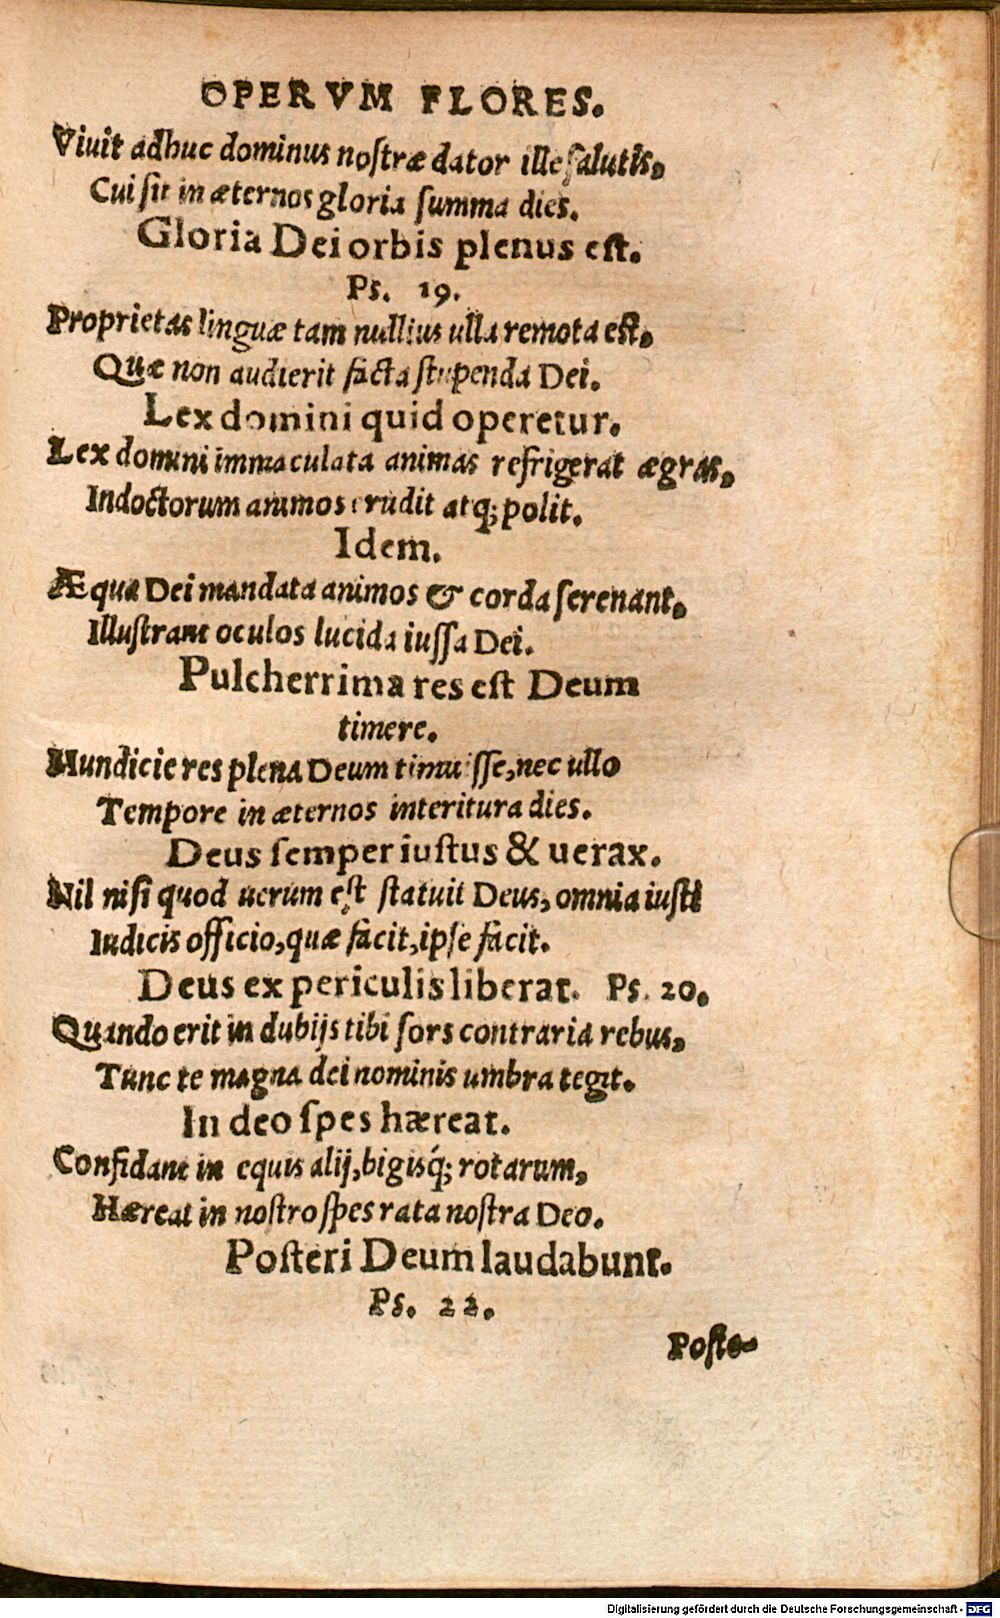 OPERVM FLORES.
Viuit adhuc dominus nostræ dator ille salutis,
Cui sit in æternos gloria summa dies.
Gloria Dei orbis plenus est.
Ps. 19.
Proprietas linguæ tam nullius ulla remota est,
Quæ non audierit facta stupenda Dei.
Lex domini quid operetur.
Lex domini immaculata animas refrigerat ægras,
Indoctorum animos erudit atq; polit.
Idem.
Æqua Dei mandata animos & corda serenant,
Illustrant oculos lucida iussa Dei.
Pulcherrima res est Deum
timere.
Mundicie res plena Deum timuisse, nec ullo
Tempore in æternos interitura dies.
Deus semper iustus & uerax.
Nil nisi quod uerum est statuit Deus, omnia iusti
Iudicis officio, quæ facit, ipse facit.
Deus ex periculis liberat. Ps. 20.
Quando erit in dubijs tibi sors contraria rebus,
Tunc te magna dei nominis umbra tegit.
In deo spes hæreat.
Confidant in equis alij, bigisq́; rotarum,
Hæreat in nostro spes rata nostra Deo.
Posteri Deum laudabunt.
Ps. 22.
Poste-
Digitalisierung gefördert durch die Deutsche Forschungsgemeinschaft - DFG